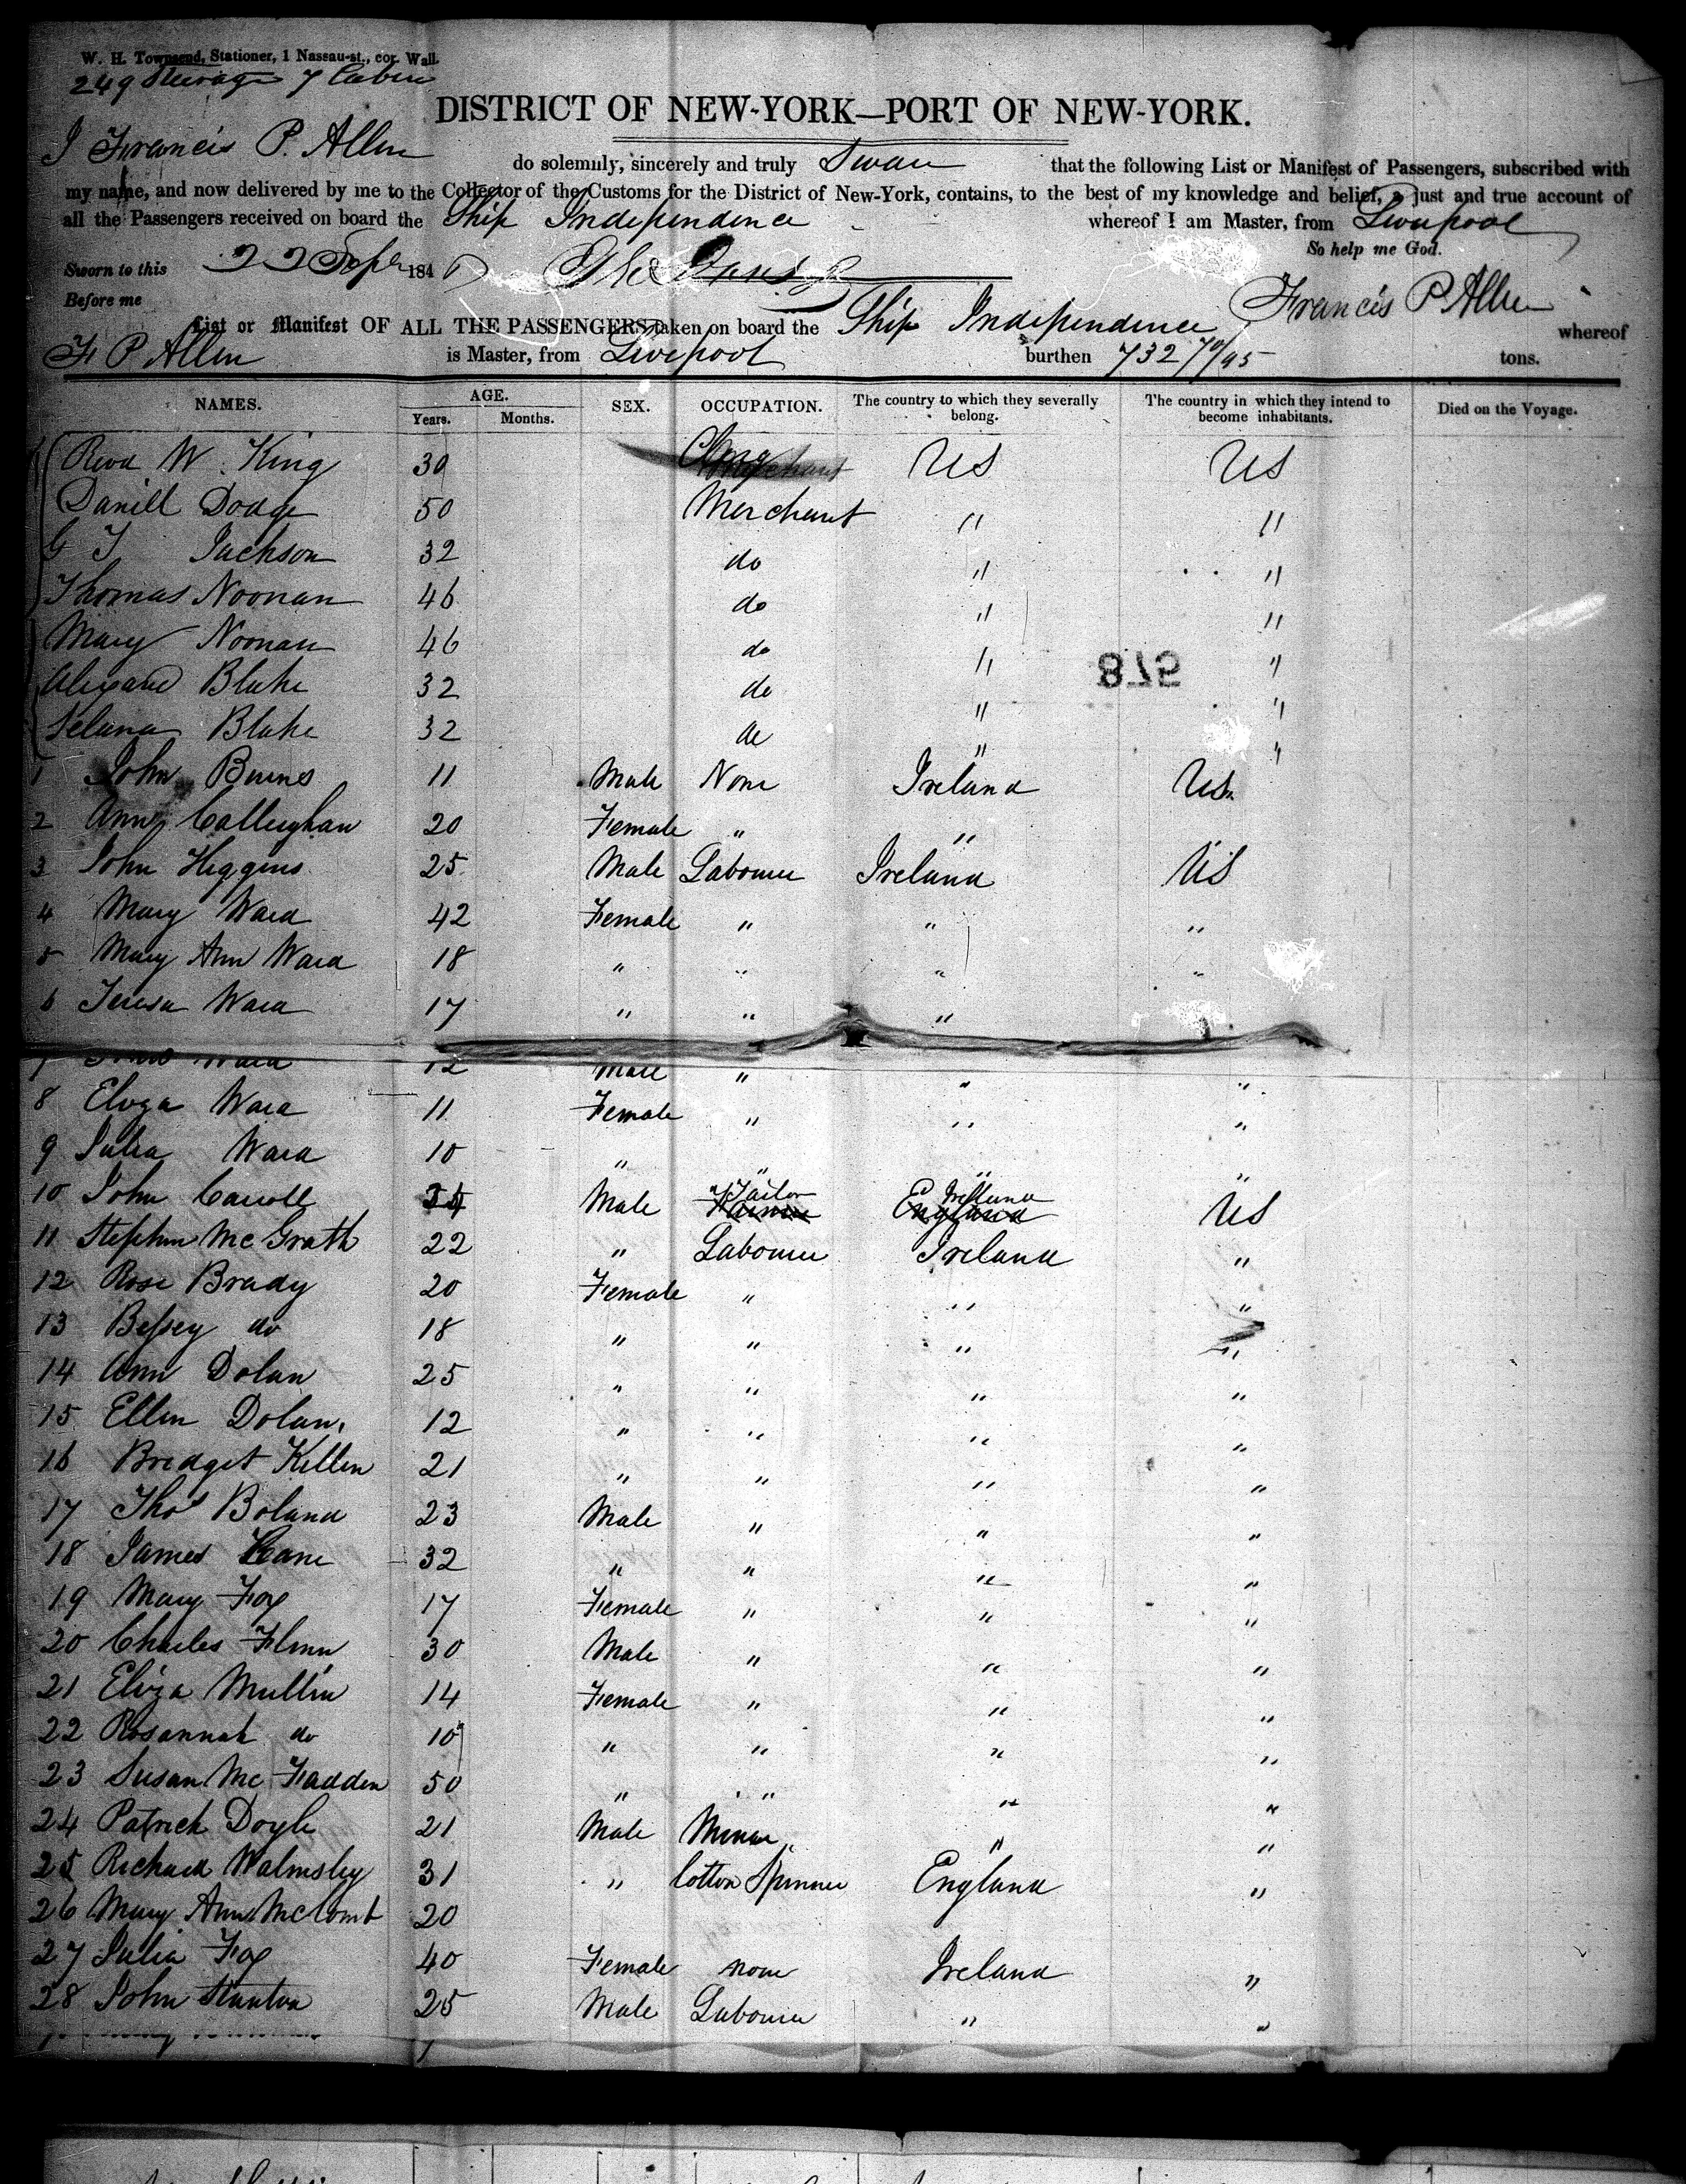 W. H. Townsend, Stationer, 1 Nassau-st., cor. Wall.
249 Steerage 7 Cabin
DISTRICT OF NEW-YORK—PORT OF NEW-YORK.
I Francis P. Allen do solemnly, sincerely and truly Swear that the following List or Manifest of Passengers, subscribed with
my name, and now delivered by me to the Collector of the Customs for the District of New-York, contains, to the best of my knowledge and belief, a just and true account of
all the Passengers received on board the Ship Independence whereof I am Master, from Liverpool
So help me God.
Sworn to this 22 Sept 184
Before me Francis P Allen
List or Manifest OF ALL THE PASSENGERS taken on board the Ship Independence whereof
F P Allen is Master, from Liverpool burthen 732 70/95 tons.
NAMES. AGE. Years. Months. SEX. OCCUPATION. The country to which they severally belong. The country in which they intend to become inhabitants. Died on the Voyage.
Revd W. King 30 Clerg US US
Daniell Dodge 50 Merchant " "
G T Jackson 32 do " "
Thomas Noonan 46 do " "
Mary Noonan 46 do " "
875
Blake 32 do " "
Selana Blake 32 do " "
1 John Burns 11 Male None Ireland US
2 Ann Calleighan 20 Female " "
3 John Higgins 25 Male Labourer Ireland US
4 Mary Ward 42 Female " " "
5 Mary Ann Ward 18 " " " "
6 Teresa Ward 17 " " "
7 Ward 12 Male " " "
8 Eliza Ward 11 Female " " "
9 Julia Ward 10 " " " "
10 John Carroll Male Tailor Ireland England US
11 Stephen McGrath 22 " Labourer Ireland "
12 Rose Brady 20 Female " " "
13 Bessey do 18 " " " "
14 Ann Dolan 25 " " " "
15 Ellen Dolan 12 " " " "
16 Bridget Killen 21 " " " "
17 Thos Boland 23 Male " " "
18 James Kane 32 " " " "
19 Mary Fox 17 Female " " "
20 Charles Flinn 30 Male " " "
21 Eliza Mullin 14 Female " " "
22 Rosannah do 10 " " " "
23 Susan McFadden 50 " " " "
24 Patrick Doyle 21 Male Miner " "
25 Richard Walmsley 31 " Cotton Spinner England "
26 Mary Ann McComb 20
27 Julia Fox 40 Female none Ireland "
28 John Stanton 25 Male Labourer " "